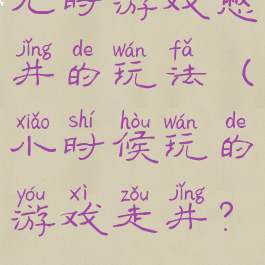 儿时游戏憋
jǐng de wán fǎ
井的玩法（
xiǎo shí hòu wán de
小时候玩的
yóu xì zǒu jǐng
游戏走井？